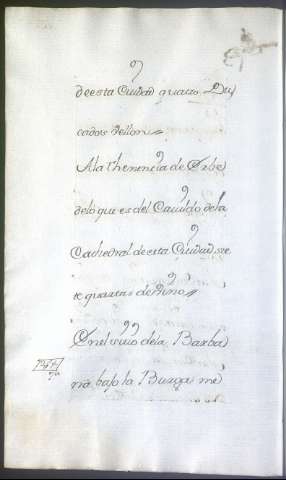 de esta Ciudad quatro Du
cados vellon
A la thenencia de Orbe
delo que es del Cavildo de la
Cathedral de esta Ciudad sie
te quartas de vino
En el vivo de la Barba
na bajo la Burga me